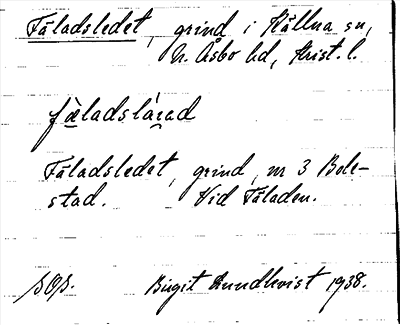 Fäladsledet, grind i Källna sn,
N. Åsbo hd, Krist. l.
fäladslärad
Fäladsledet, grind, nr 3 Bole-
stad. Vid Fäladen.
S.O.S. Birgit Rundkvist 1938.